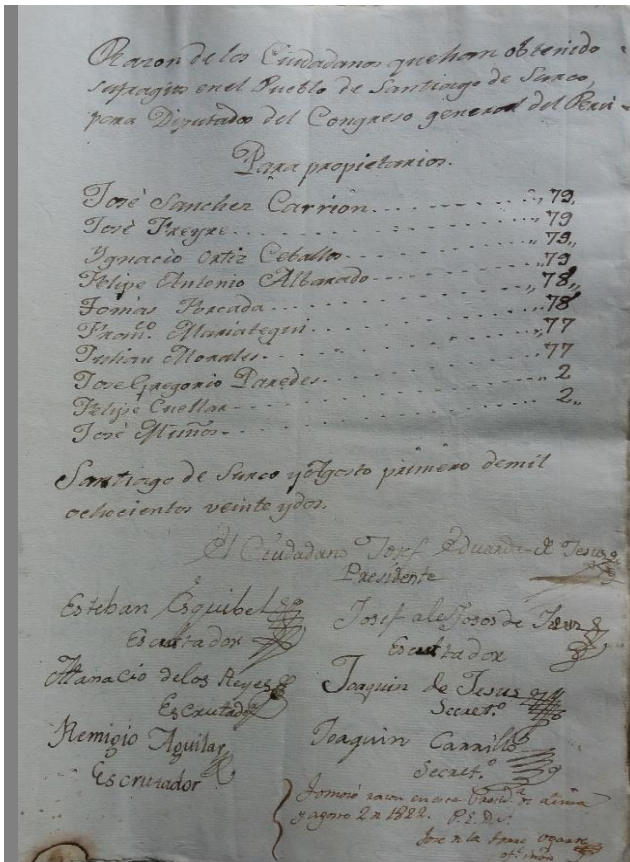 Razon de los Ciudadanos que han obtenido
sufragios en el Pueblo de Santiago de Surco,
para Diputados del Congreso general del Perú
Para propietarios.
José Sanchez Carrion 79,
José Freyre 79
Ygnacio Ortiz Ceballos 79,,
Felipe Antonio Albarado 79
Tomás Forcada 78,,
Fran.co Mariategui 78
Julian Morales 77
Jose Gregorio Paredes 77
Felipe Cuellar 2
José Muños 2,,
Santiago de Surco y Agosto primero de mil
ochocientos veinte y dos.
El Ciudadano Josef Eduardo de Jesus
Presidente
Esteban Esquibel
Escrutador
Josef de Jesus
Escrutador
Atanacio de los Reyes
Escrutador
Joaquin de Jesus
Secret.o
Remigio Aguilar
Escrutador
Joaquin Carrillo
Secret.o
Tomose razon en esta de Lima
y agosto 2 de 1822.
José de la